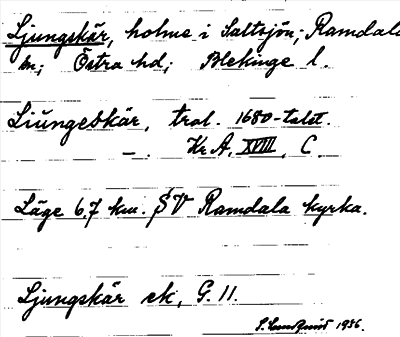 Ljungskär, holme i Saltsjön; Ramdala
sn; Östra hd; Blekinge l.
Liŭngeskär, trol. 1680-talet.
— . Kr A, XVIII, C.
Läge 6,7 km. SV Ramdala kyrka.
Ljungskär ek, G. 11.
S. Lundquist 1936.